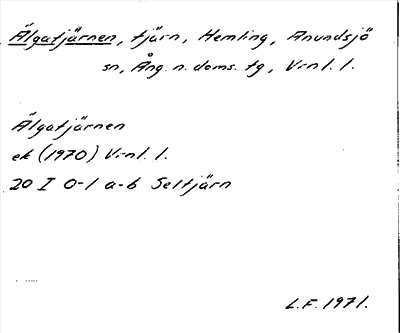 Älgatjärnen, tjärn, Hemling, Anundsjö
sn, Ång. n. doms. tg, Vrnl. l.
Älgatjärnen
ek (1970) Vrnl. l.
20 I 0-1 a-b Seltjärn
L.F. 1971.